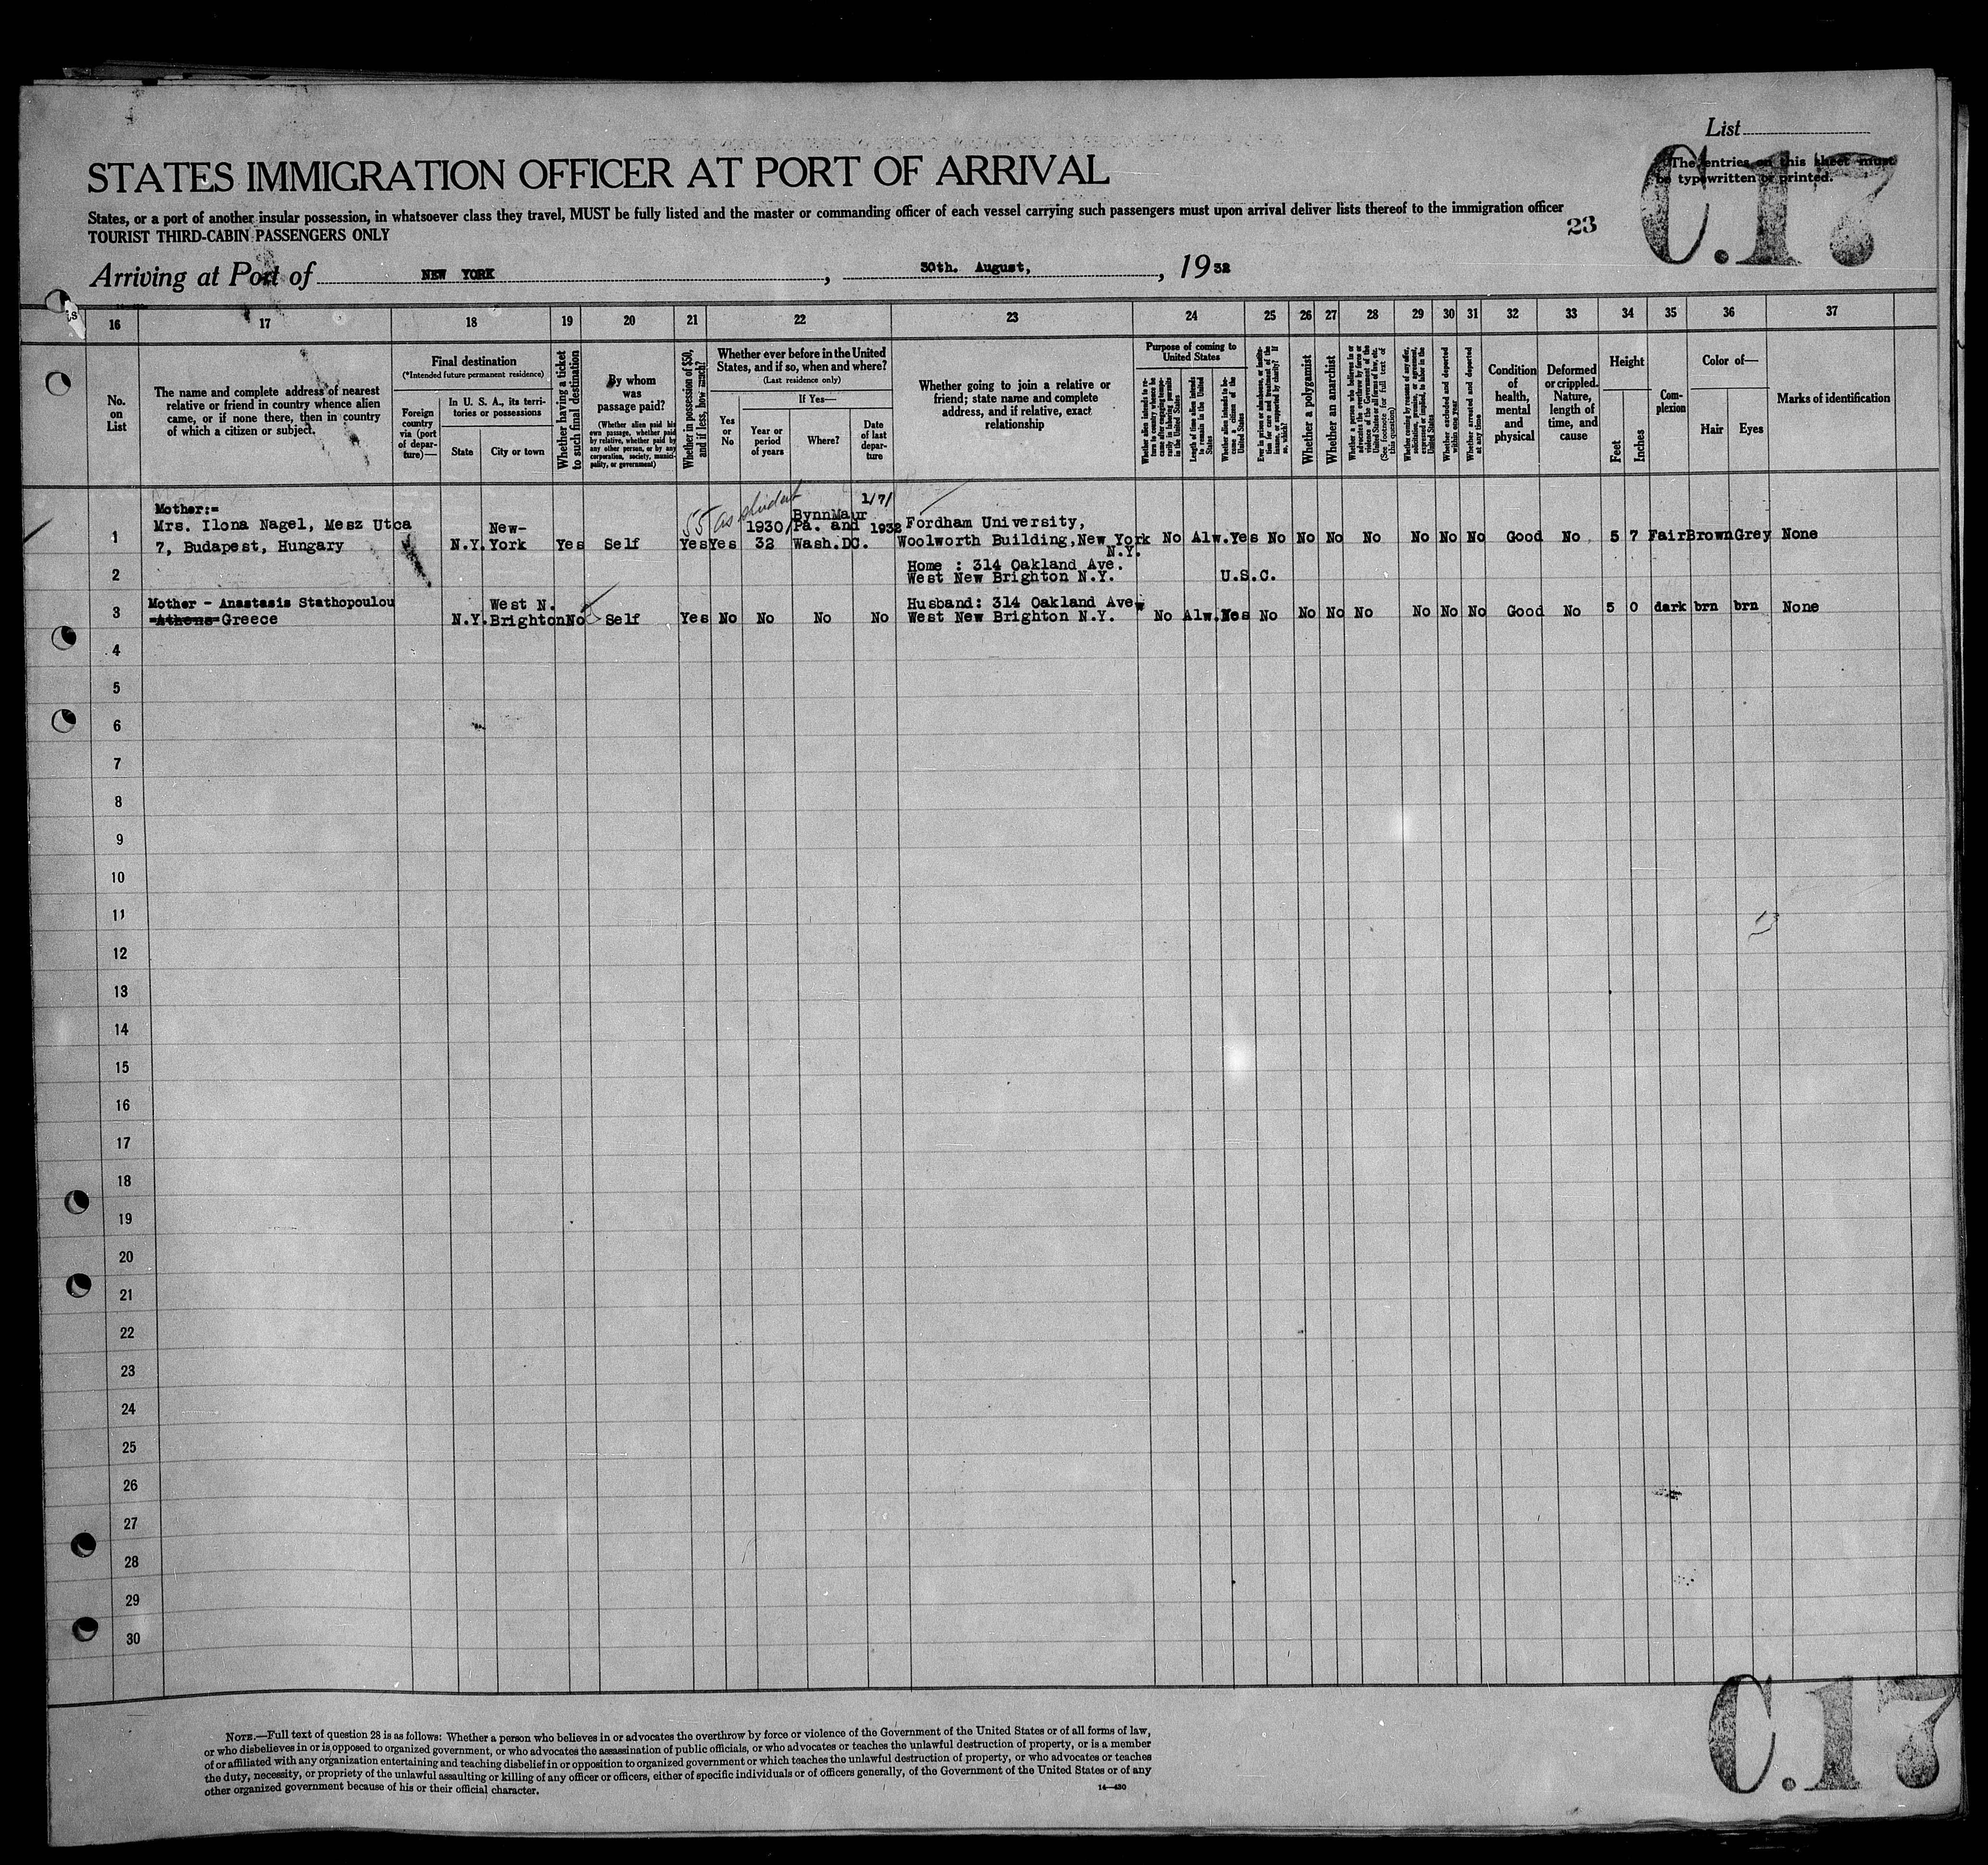 List
The entries on this sheet must
be typewritten or printed.
C.17
STATES IMMIGRATION OFFICER AT PORT OF ARRIVAL
States, or a port of another insular possession, in whatsoever class they travel, MUST be fully listed and the master or commanding officer of each vessel carrying such passengers must upon arrival deliver lists thereof to the immigration officer
TOURIST THIRD-CABIN PASSENGERS ONLY
23
Arriving at Port of NEW YORK, 30th. August, 1932
16 17 18 19 20 21 22 23 24 25 26 27 28 29 30 31 32 33 34 35 36 37
No.
on
List
The name and complete address of nearest
relative or friend in country whence alien
came, or if none there, then in country
of which a citizen or subject.
Final destination
(*Intended future permanent residence)
Foreign
country
via (port
of depar-
ture)—
In U. S. A., its terri-
tories or possessions
State
City or town
Whether having a ticket
to such final destination
By whom
was
passage paid?
(Whether alien paid his
own passage, whether paid
by relative, whether paid by
any other person, or by any
corporation, society, munici-
pality, or government)
Whether in possession of $50,
and if less, how much?
Whether ever before in the United
States, and if so, when and where?
(Last residence only)
Yes
or
No
If Yes—
Year or
period
of years
Where?
Date
of last
depar-
ture
Whether going to join a relative or
friend; state name and complete
address, and if relative, exact
relationship
Purpose of coming to
United States
Whether alien intends to re-
turn to country whence he
came after engaging tempo-
rarily in laboring pursuits
in the United States
Length of time alien intends
to remain in the United
States
Whether alien intends to be-
come a citizen of the
United States
Ever in prison or almshouse, or institu-
tion for care and treatment of the
insane, or supported by charity? If
so, which?
Whether a polygamist
Whether an anarchist
Whether a person who believes in or
advocates the overthrow by force or
violence of the Government of the
United States or all forms of law, etc.
(See footnote for full text of
this question)
Whether coming by reasons of any offer,
solicitation, promise, or agreement,
expressed or implied, to labor in the
United States
Whether excluded and deported
within one year
Whether arrested and deported
at any time
Condition
of
health,
mental
and
physical
Deformed
or crippled.
Nature,
length of
time, and
cause
Height
Feet
Inches
Com-
plexion
Color of—
Hair
Eyes
Marks of identification
1
Mother:-
Mrs. Ilona Nagel, Mesz Utca
7, Budapest, Hungary
N.Y.
New-
York
Yes Self
55 as student
Yes Yes
1930/
32
BynnMaur
Pa. and
Wash.DC.
1/7/
1932
Fordham University,
Woolworth Building,New York
N.Y.
No Alw. Yes No No No No No No No Good No 5 7 Fair Brown Grey None
2
Home : 314 Oakland Ave.
West New Brighton N.Y.
U.S.C.
3
Mother - Anastasis Stathopoulou
Athens Greece
N.Y.
West N.
Brighton
No Self Yes No No No No
Husband: 314 Oakland Ave.
West New Brighton N.Y.
No Alw. Yes No No No No No No No Good No 5 0 dark brn brn None
4
5
6
7
8
9
10
11
12
13
14
15
16
17
18
19
20
21
22
23
24
25
26
27
28
29
30
NOTE.—Full text of question 28 is as follows: Whether a person who believes in or advocates the overthrow by force or violence of the Government of the United States or of all forms of law,
or who disbelieves in or is opposed to organized government, or who advocates the assassination of public officials, or who advocates or teaches the unlawful destruction of property, or is a member
of or affiliated with any organization entertaining and teaching disbelief in or opposition to organized government or which teaches the unlawful destruction of property, or who advocates or teaches
the duty, necessity, or propriety of the unlawful assaulting or killing of any officer or officers, either of specific individuals or of officers generally, of the Government of the United States or of any
other organized government because of his or their official character.
14—430
C.17